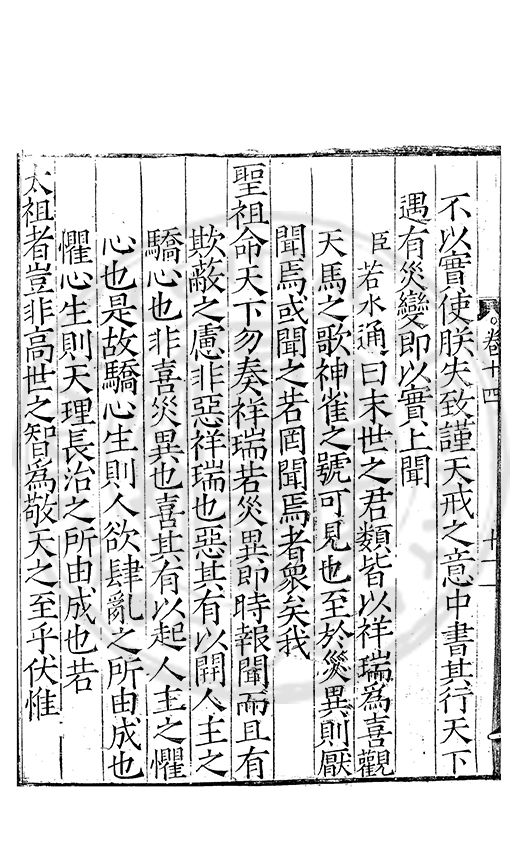 卷十四
不以實使朕失致謹天戒之意中書其行天下
遇有災變即以實上聞
臣若水通曰末世之君類皆以祥瑞爲喜觀
天馬之歌神雀之號可見也至於災異則厭
聞焉或聞之若罔聞焉者衆矣我
聖祖命天下勿奏祥瑞若災異即時報聞而且有
欺蔽之慮非惡祥瑞也惡其有以開人主之
驕心也非喜災異也喜其有以起人主之懼
心也是故驕心生則人欲肆亂之所由成也
懼心生則天理長治之所由成也若
太祖者豈非高世之智爲敬天之至乎伏惟